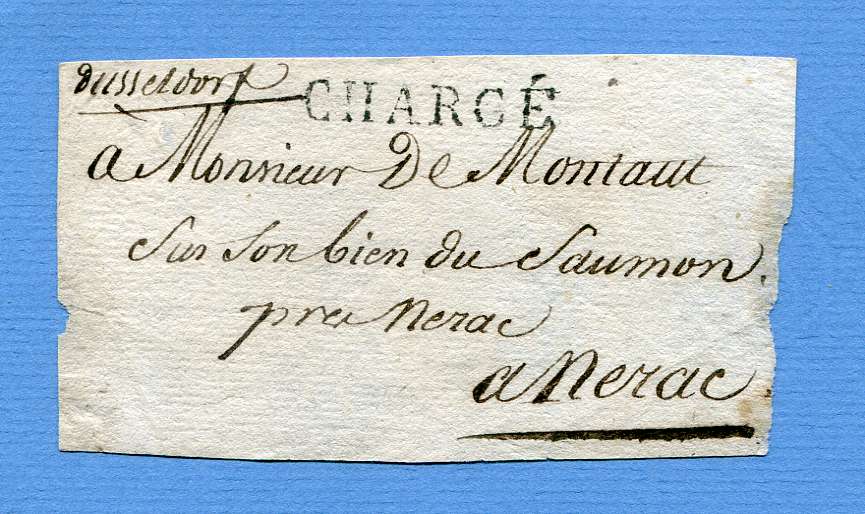 dusseldorf CHARGÉ
à Monsieur De Montaut
Sur son bien du Saumon.
pres Nerac
a Nerac